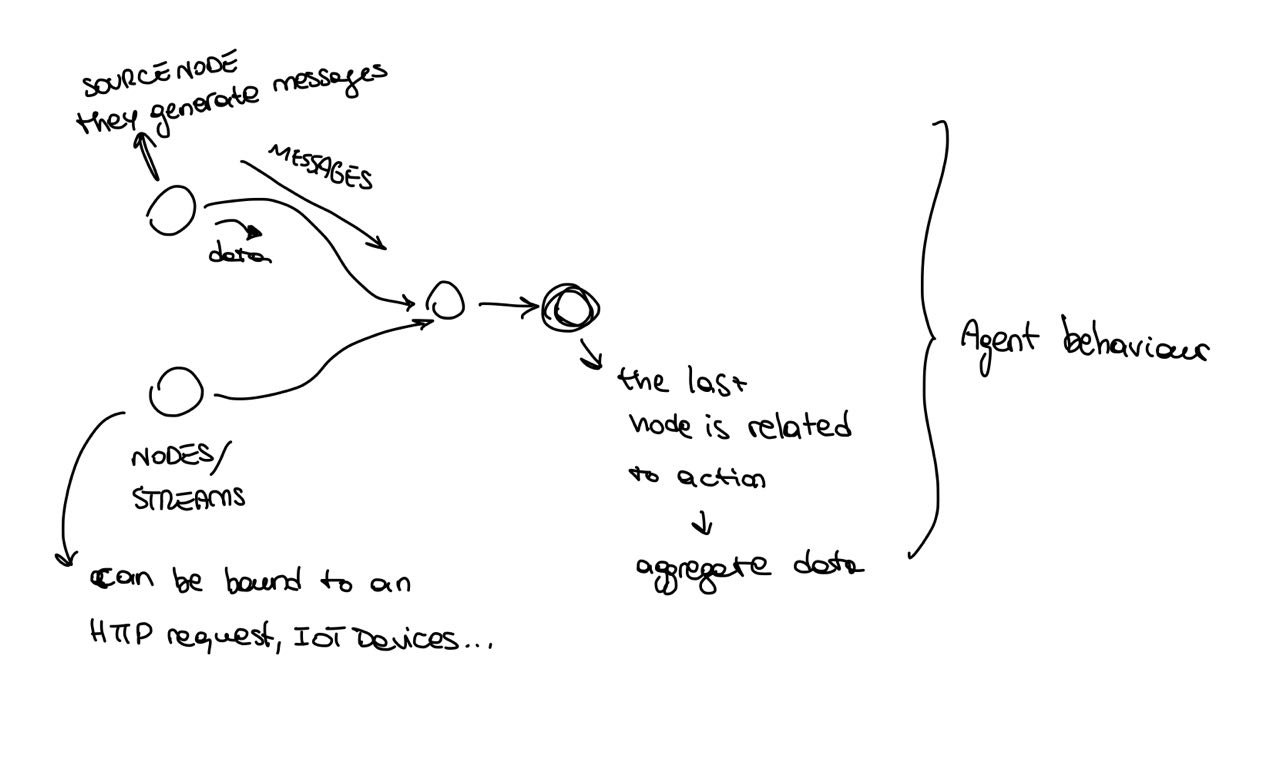 SOURCE NODE
they generate messages
MESSAGES
data
NODES/
STREAMS
can be bound to an
HTTP request, IOT Devices...
the last
node is related
to action
aggregate data
Agent behaviour